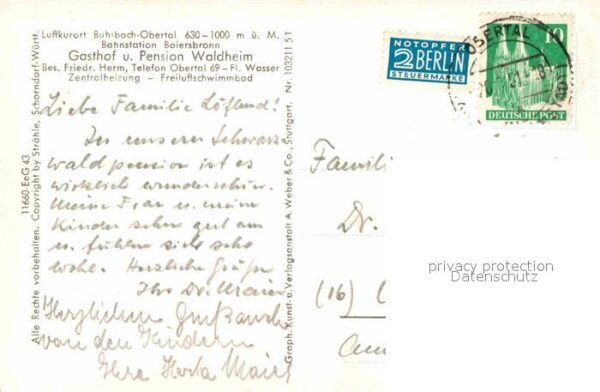 Luftkurort Buhlbach-Obertal 630-1000 m ü. M.
Bahnstation Baiersbronn
Gasthof u. Pension Waldheim
Bes. Friedr. Herm, Telefon Obertal 69 - Fl. Wasser
Zentralheizung - Freiluftschwimmbad
Liebe Familie Löflund!
In unserer Schwarz-
waldpension ist es
wirklich wunderschön.
Meine Frau u. meine
Kinder
u. fühlen sich sehr
wohl. Herzliche Grüße
Ihr Dr. Maier
Herzlichen Gruß auch
von den Kindern
Ihre Herta Maier
11660-EeG 43
Alle Rechte vorbehalten. Copyright by Strähle, Schorndorf-Württ.
Graph. Kunst- u. Verlagsanstalt A. Weber & Co., Stuttgart. Nr. 103211 51
NOTOPFER
2 BERLIN
STEUERMARKE
OBERTAL
10
DEUTSCHE POST
Famili
Dr.
(16)
privacy protection
Datenschutz